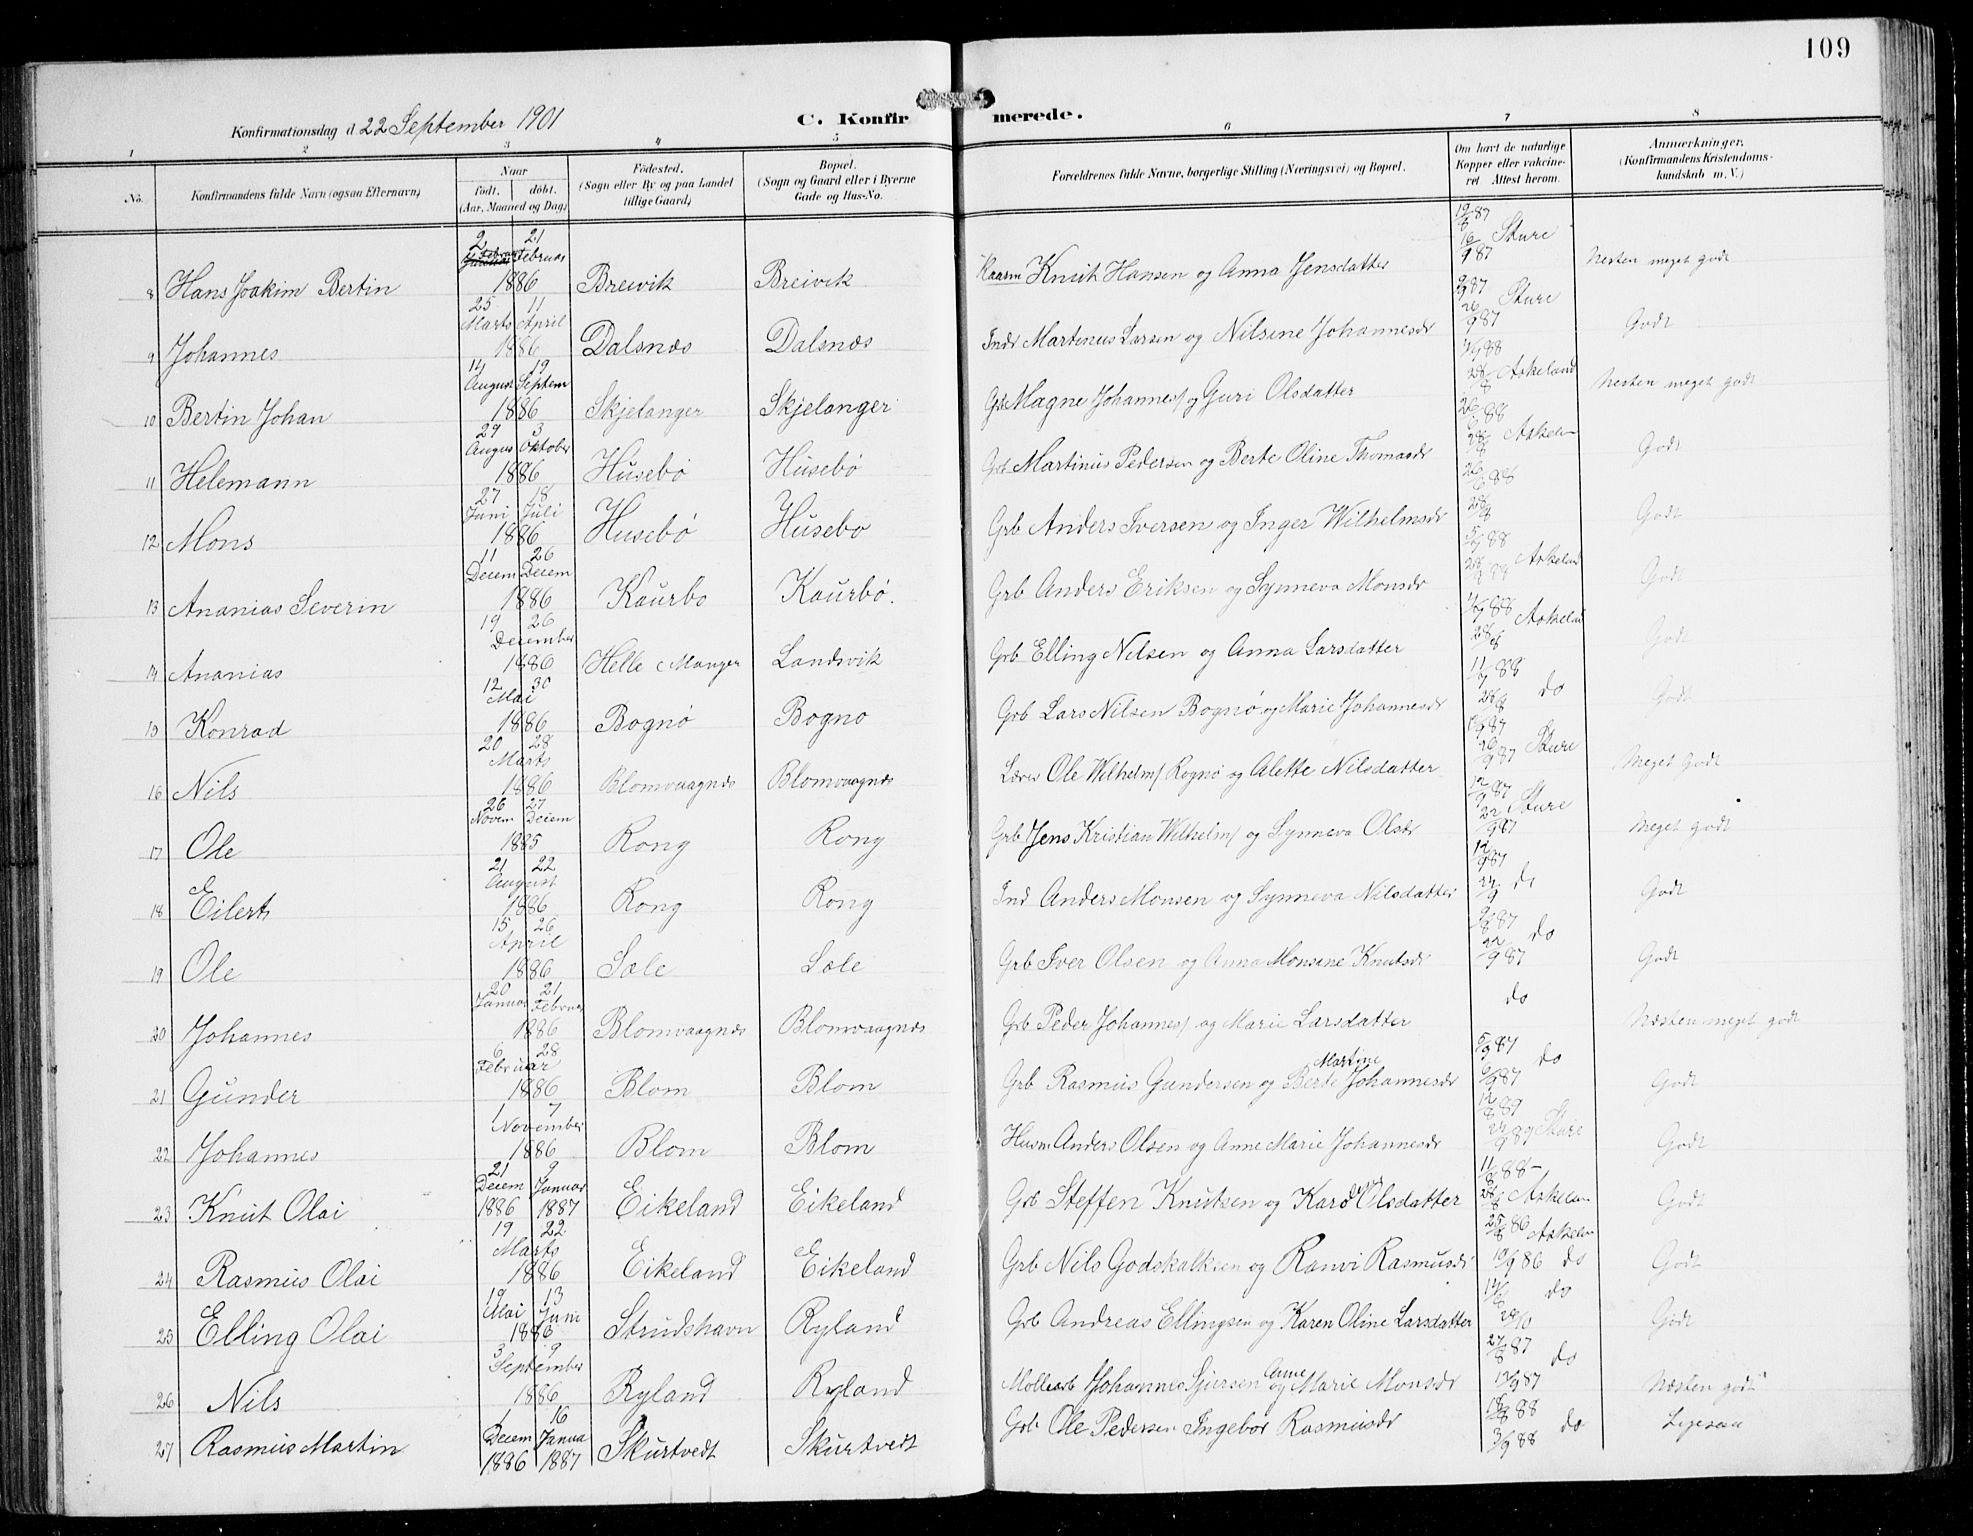 109
Konfirmationsdag d. 22 September 1901
C. Konfirmerede.
1 2 3 4 5 6 7 8
No. Konfirmandens fulde Navn (ogsaa Efternavn) Naar født. døbt. (Aar, Maaned og Dag) Fødested. (Sogn eller By og paa Landet tillige Gaard) Bopæl. (Sogn og Gaard eller i Byerne Gade og Hus-No. Forældrenes fulde Navne, borgerlige Stilling (Næringsvei) og Bopæl. Om havt de naturlige Kopper eller vakcineret Attest herom. Anmærkninger. (Konfirmandens Kristendomskundskab m. V.)
8 Hans Joakim Bertin 2 Februar 21 Februar 1886 Breivik Breivik Kaarm Knut Hansen og Anna Jensdatter 19/8 87 16/9 87 Sture Nesten meget godt
9 Johannes 25 Marts 11 April 1886 Dalsnæs Dalsnæs Indr Martinus Larsen og Nilsine Johannesdr 26/9 87 Sture Godt
10 Bertin Johan 14 August 19 Septem 1886 Skjelanger Skjelanger Grb Magne Johannes/ og Guri Olsdatter 28/8 88 Askeland Nesten meget godt
11 Helemann 29 Augus 3 Oktober 1886 Husebø Husebø Grb Martinus Pedersen og Berte Oline Thomasdr 26/6 88 28/8 Askelan Godt
12 Mons 27 Juni 18 Juli 1886 Husebø Husebo Grb Anders Iversen og Inger Wilhelmsdr 26/6 88 28/8 Godt
13 Ananias Severin 11 Decem 26 Decem 1886 Kaurbo Kaurbø. Grb Anders Eriksen og Synneva Monsdr 88 28/8 88 Askeland Godt
14 Ananias 19 26 December 1886 Helle Manger Landsvik Grb Elling Nilsen og Anna Larsdatter 88 28/8 Askelan Godt
15 Konrad 12 30 Mai 1886 Bognø Bogno Grb Lars Nilsen Bognø og Marie Johannesdr 11/7 88 28/8 do Godt
16 Nils 20 28 Marts 1886 Blomvaagnæs Blomvaagnæs Lærer Ole Wilhelm/ Rognø og Alette Nilsdatter 87 26/9 87 Sture Meget Godt
17 Ole 26 Novem 27 Decem 1885 Rong Rong Grb Jens Kristian Wilhelm/ og Synneva Olsdr 12/9 87 22/9 87 Sture Meget godt
18 Eilert 21 22 August 1886 Rong Rong Ind Anders Monsen og Synneva Nilsdatter 12/9 87 do Godt
19 Ole 15 26 April 1886 Sæle Sæle Grb Iver Olsen og Anna Monsine Knutsdr 87 22/9 87 do Godt
20 Johannes 20 Januar 21 Februar 1886 Blomvaagnæs Blomvaagnæs Grb Peder Johannes/ og Marie Larsdatter do Næsten meget godt
21 Gunder 6 28 Februar 1886 Blom Blom Grb Rasmus Gundersen og Berte Martine Johannesdr 5/9 87 87 do Godt
22 Johannes 1 7 November 1886 Blom Blom Husm Anders Olsen og Anne Marie Johannesdr 12/8 89 Sture Godt
23 Knut Olai 21 Decem 1886 9 Januar 1887 Eikeland Eikeland Grb Steffen Knutsen og Kari Olsdatter 11/8 88 28/8 Askelan Godt
24 Rasmus Olai 19 22 Marts 1886 Eikeland Eikeland Grb Nils Godskalksen og Ranvi Rasmusdr 25/8 86 Askelan 19/9 86 do Godt
25 Elling Olai 19 Mai 13 Juni 1886 Strudshavn Ryland Grb Andreas Ellingsen og Karen Oline Larsdatter do Godt
26 Nils 3 9 September 1886 Ryland Ryland Møllearb Johannes Sjursen og Anne Marie Monsdr 27/8 87 19/9 87 do Næsten godt
27 Rasmus Martin 1 Decem 1886 16 Janua 1887 Skurtvedt Skurtvedt Grb Ole Pedersen Ingebor Rasmusdr 18/8 88 3/9 88 do Ligesaa